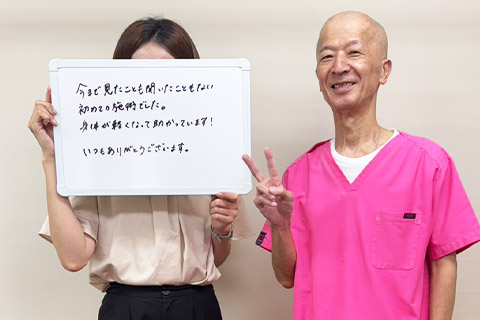 今まで見たことも聞いたこともない
初めての施術でした。
身体が軽くなって助かっています!
いつもありがとうございます。